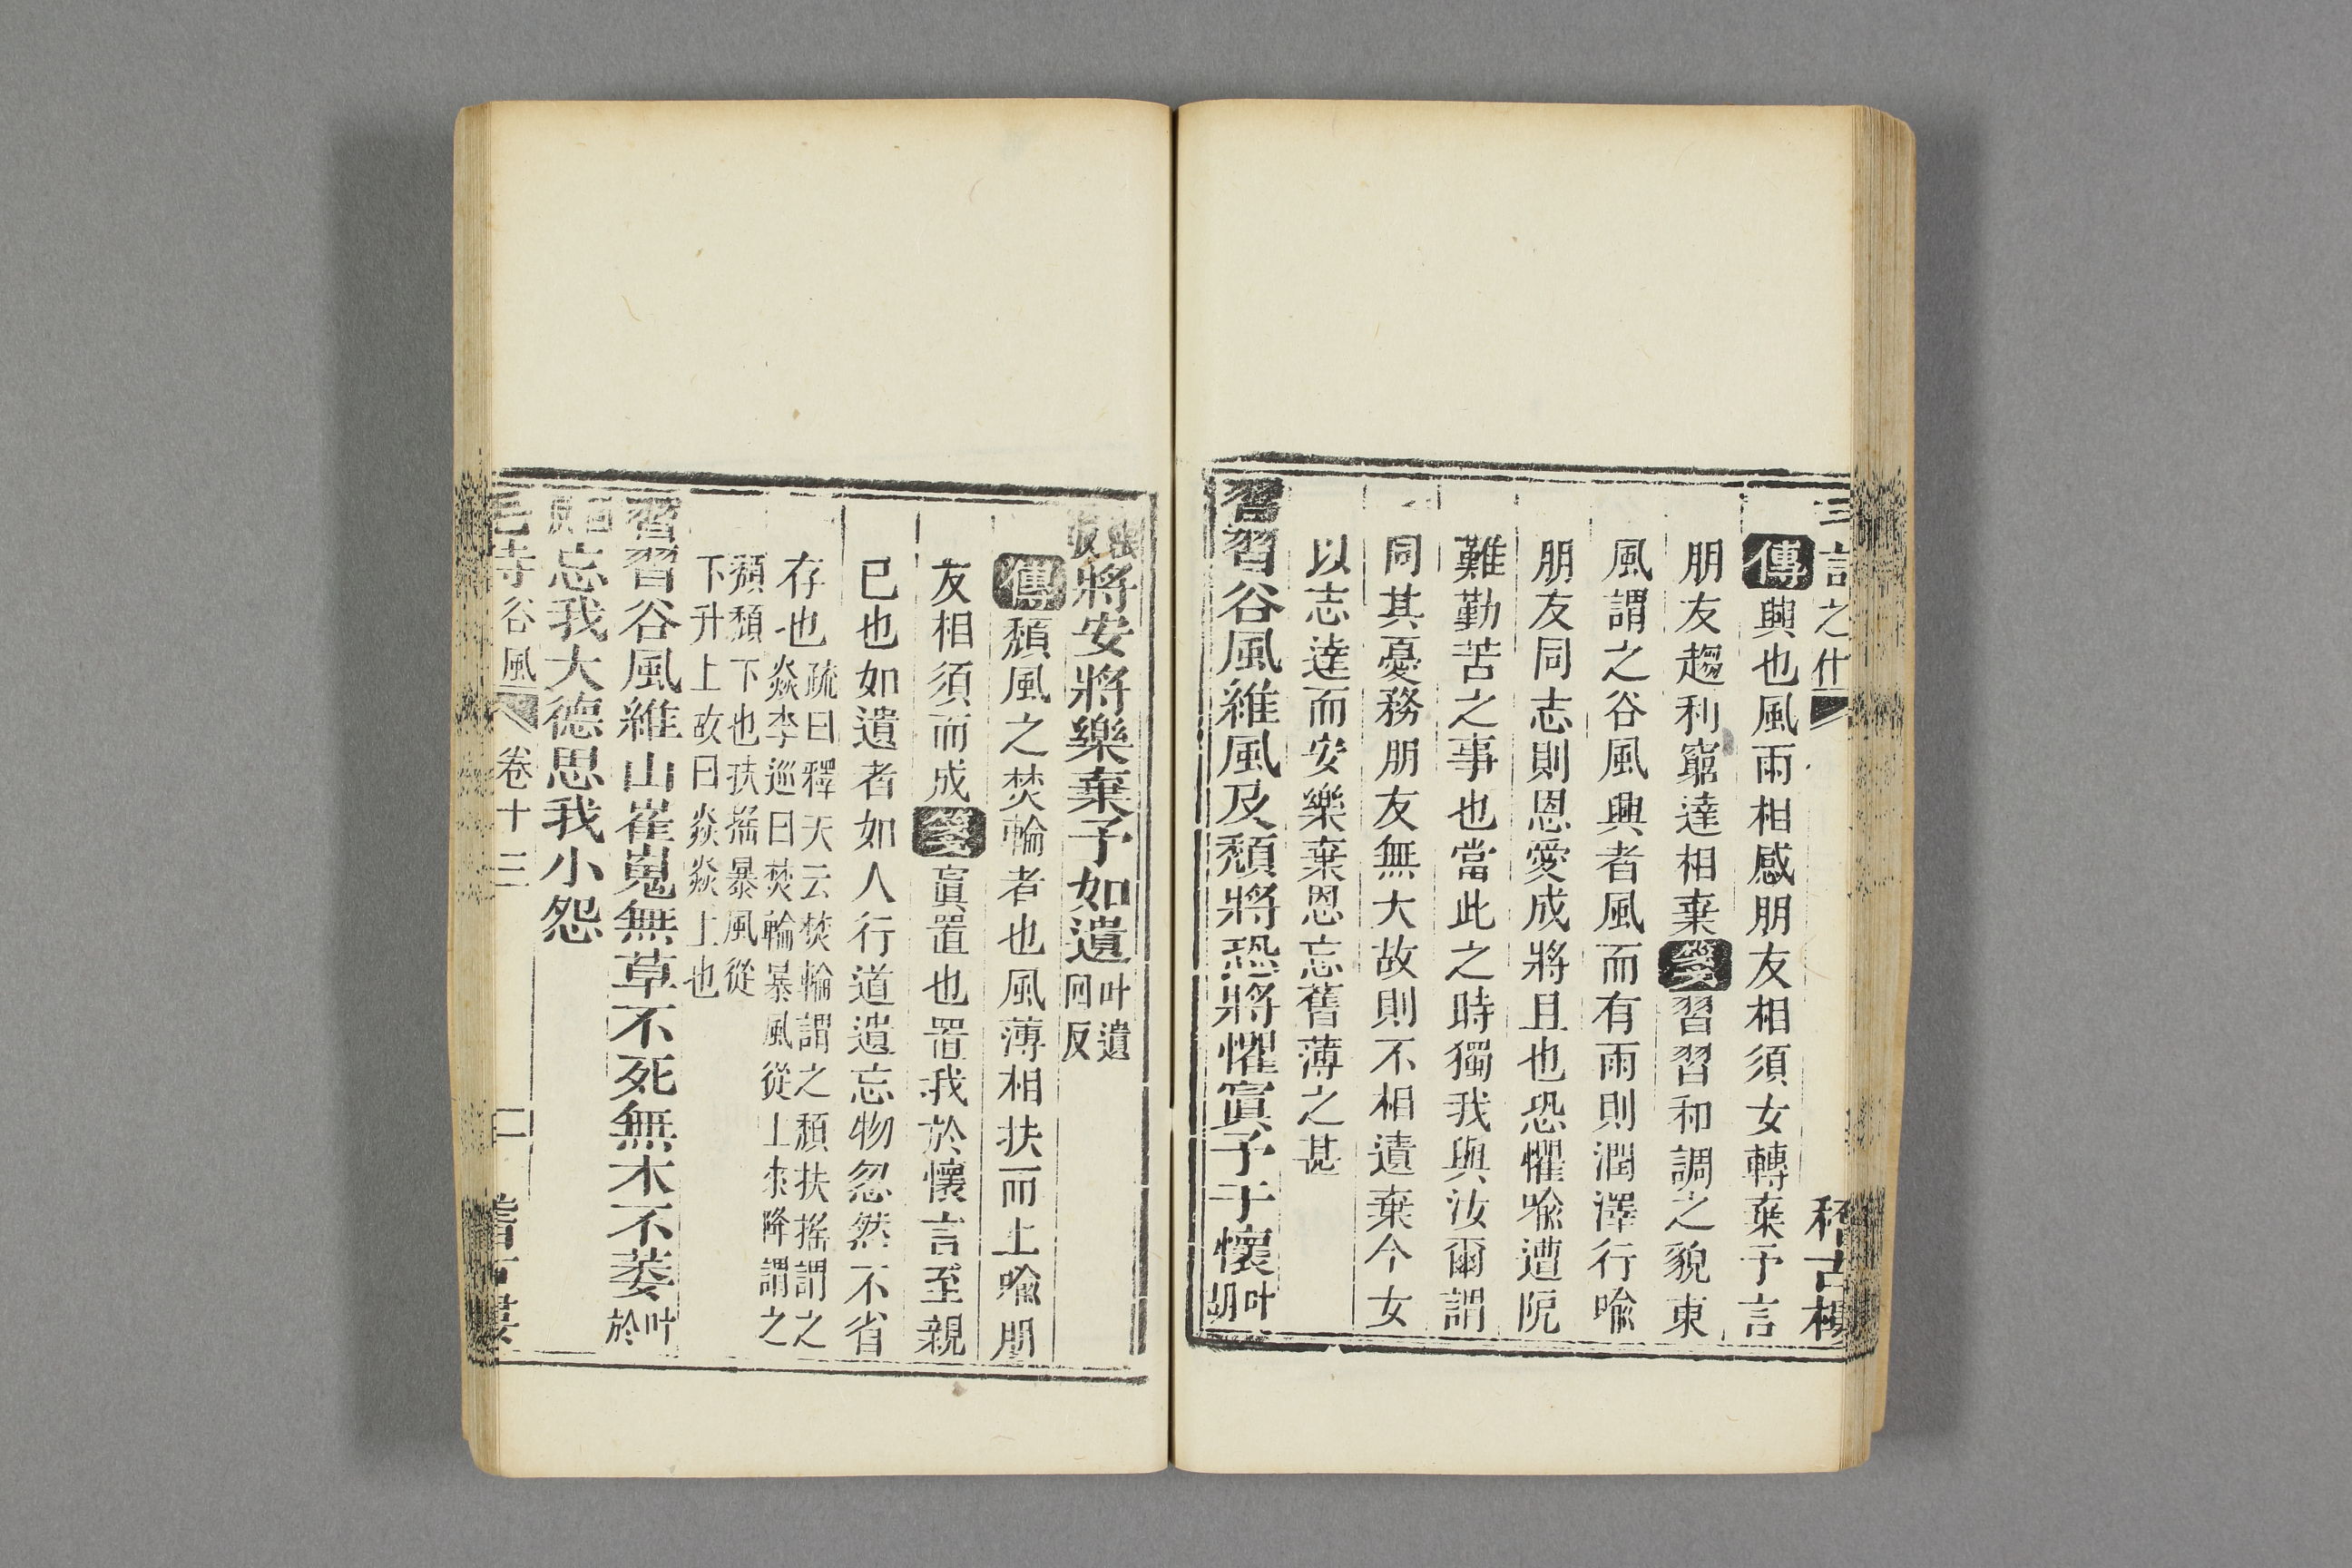 之什
稽古樓
傳興也風雨相感朋友相須女轉棄予言
朋友趨利窮達相棄箋習習和調之貌東
風謂之谷風興者風而有雨則潤澤行喻
朋友同志則恩愛成將且也恐懼喻遭阨
難勤苦之事也當此之時獨我與汝爾謂
同其憂務朋友無大故則不相遺棄今女
以志達而安樂棄恩忘舊薄之甚
習習谷風維風及頹將恐將懼寘予于懷叶胡
反將安將樂棄予如遺叶遺回反
傳頹風之焚輪者也風薄相扶而上喻朋
友相須而成箋寘置也置我於懷言至親
已也如遺者如人行道遺忘物忽然不省
存也疏曰釋天云焚輪謂之頹扶搖謂之
焱李巡曰焚輪暴風從上來降謂之
頹頹下也扶搖暴風從
下升上故曰焱焱上也
習習谷風維山崔嵬無草不死無木不萎叶於
忘我大德思我小怨
毛詩谷風 卷十三 二